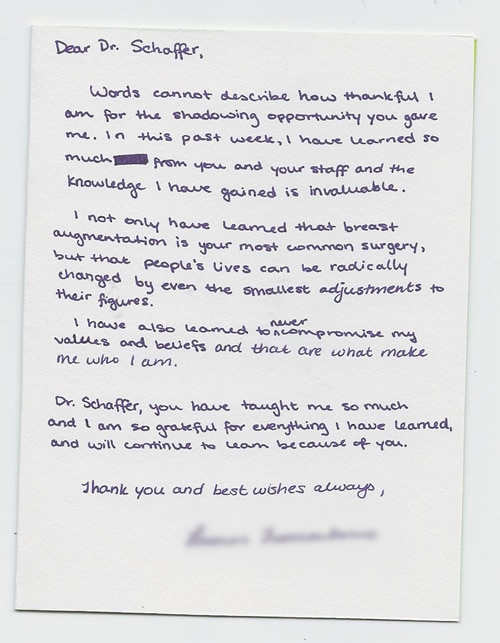 Dear Dr. Schaffer,
Words cannot describe how thankful I
am for the shadowing opportunity you gave
me. In this past week, I have learned so
much from you and your staff and the
knowledge I have gained is invaluable.
I not only have learned that breast
augmentation is your most common surgery,
but that people's lives can be radically
changed by even the smallest adjustments to
their figures.
I have also learned to never compromise my
values and beliefs and that are what make
me who I am.
Dr. Schaffer, you have taught me so much
and I am so grateful for everything I have learned,
and will continue to learn because of you.
Thank you and best wishes always,